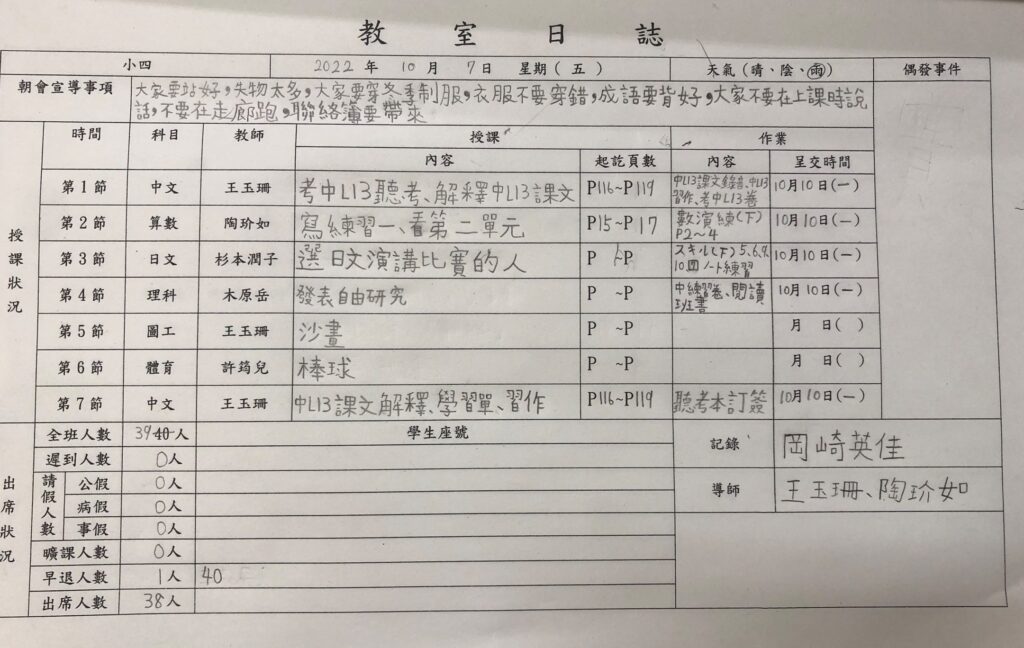 教室日誌
小四 2022 年 10 月 7 日 星期 ( 五 ) 天氣 (晴、陰、雨) 偶發事件
朝會宣導事項 大家要站好,失物太多,大家要穿冬季制服,衣服不要穿錯,成語要背好,大家不要在上課時說
話,不要在走廊跑,聯絡簿要帶來
授課狀況 時間 科目 教師 授課 作業
內容 起訖頁數 內容 呈交時間
第1節 中文 王玉珊 考中L13聽考、解釋中L13課文 P116~P119 中L13課文錄音、中L13 10月10日(一)
習作、考中L13卷
第2節 算數 陶玠如 寫練習一、看第二單元 P15~P17 數演練(下) 10月10日(一)
P2~4
第3節 日文 杉本潤子 選日文演講比賽的人 P ~P スキル(下)5.6.9. 10月10日(一)
10回ノート練習
第4節 理科 木原岳 發表自由研究 P ~P 中練習卷、閱讀 10月10日(一)
班書
第5節 圖工 王玉珊 沙畫 P ~P 月 日( )
第6節 體育 許筠兒 棒球 P ~P 月 日( )
第7節 中文 王玉珊 中L13課文解釋、學習單、習作 P116~P119 聽考本訂簽 10月10日(一)
出席狀況 全班人數 39 40人 學生座號 記錄 岡崎英佳
遲到人數 0人
請假人數 公假 0人 導師 王玉珊、陶玠如
病假 0人
事假 0人
曠課人數 0人
早退人數 1人 40
出席人數 38人